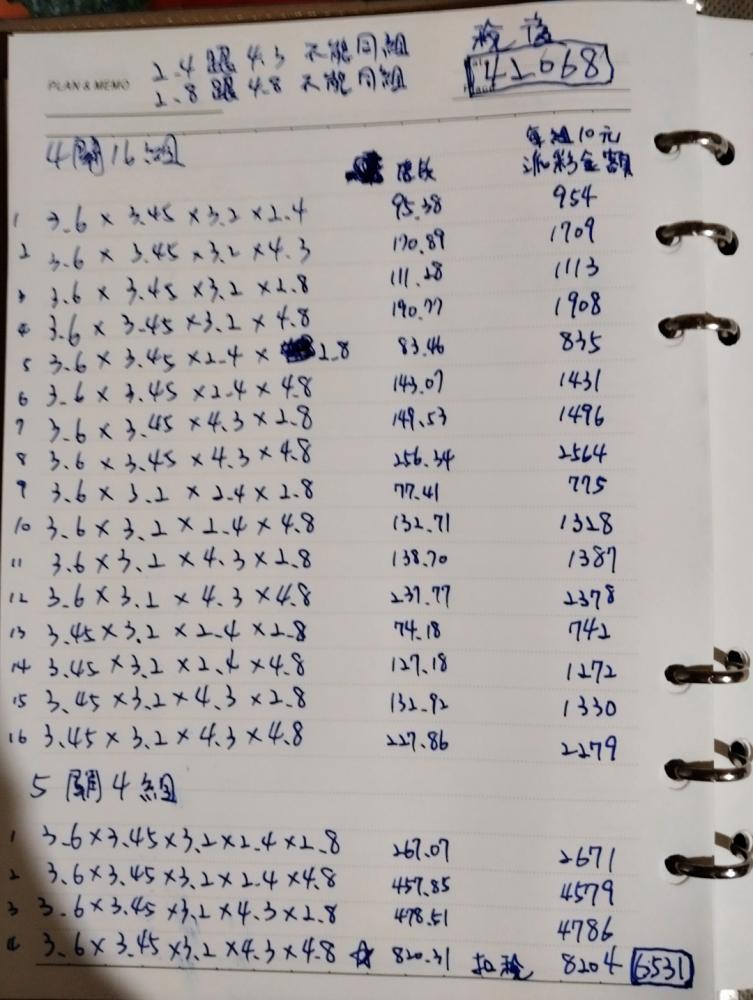 稅後
2.4 跟 4.3 不能同組
42068
PLAN & MEMO
2.8 跟 4.8 不能同組
4關16組 賠率 每組10元派彩金額
1 3.6 × 3.45 × 3.2 × 2.4 95.38 954
2 3.6 × 3.45 × 3.2 × 4.3 170.89 1709
3 3.6 × 3.45 × 3.2 × 2.8 111.28 1113
4 3.6 × 3.45 × 3.2 × 4.8 190.77 1908
5 3.6 × 3.45 × 2.4 × 2.8 83.46 835
6 3.6 × 3.45 × 2.4 × 4.8 143.07 1431
7 3.6 × 3.45 × 4.3 × 2.8 149.53 1496
8 3.6 × 3.45 × 4.3 × 4.8 256.34 2564
9 3.6 × 3.2 × 2.4 × 2.8 77.41 775
10 3.6 × 3.2 × 2.4 × 4.8 132.71 1328
11 3.6 × 3.2 × 4.3 × 2.8 138.70 1387
12 3.6 × 3.2 × 4.3 × 4.8 237.77 2378
13 3.45 × 3.2 × 2.4 × 2.8 74.18 742
14 3.45 × 3.2 × 2.4 × 4.8 127.18 1272
15 3.45 × 3.2 × 4.3 × 2.8 132.92 1330
16 3.45 × 3.2 × 4.3 × 4.8 227.86 2279
5關4組
1 3.6 × 3.45 × 3.2 × 2.4 × 2.8 267.07 2671
2 3.6 × 3.45 × 3.2 × 2.4 × 4.8 457.85 4579
3 3.6 × 3.45 × 3.2 × 4.3 × 2.8 478.51 4786
4 3.6 × 3.45 × 3.2 × 4.3 × 4.8 ☆ 820.31 扣稅 8204 6531